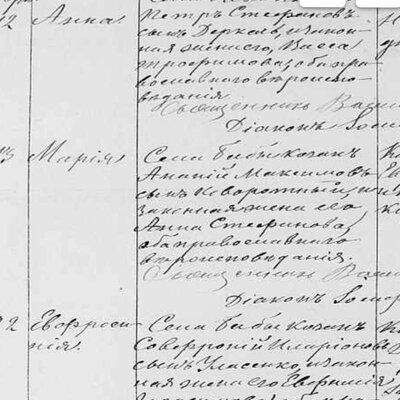 12 Анна
Петръ Стефановъ
сынъ Деркачъ, и закон-
ная жена его, Васса
Трофимова, оба пра-
вославнаго вѣроиспо-
вѣданія.
Священникъ
Діаконъ
Марія
Села Бабы-козакъ
Ананій Максимовъ
сынъ Коворотный, и
законная жена его
Анна Стефанова,
оба православнаго
вѣроисповѣданія.
Священникъ
Діаконъ
Евфроси-
нія.
Села Бабы козакъ
Софроній Иларіоновъ
сынъ Власенко, и закон-
ная жена его Евфимія